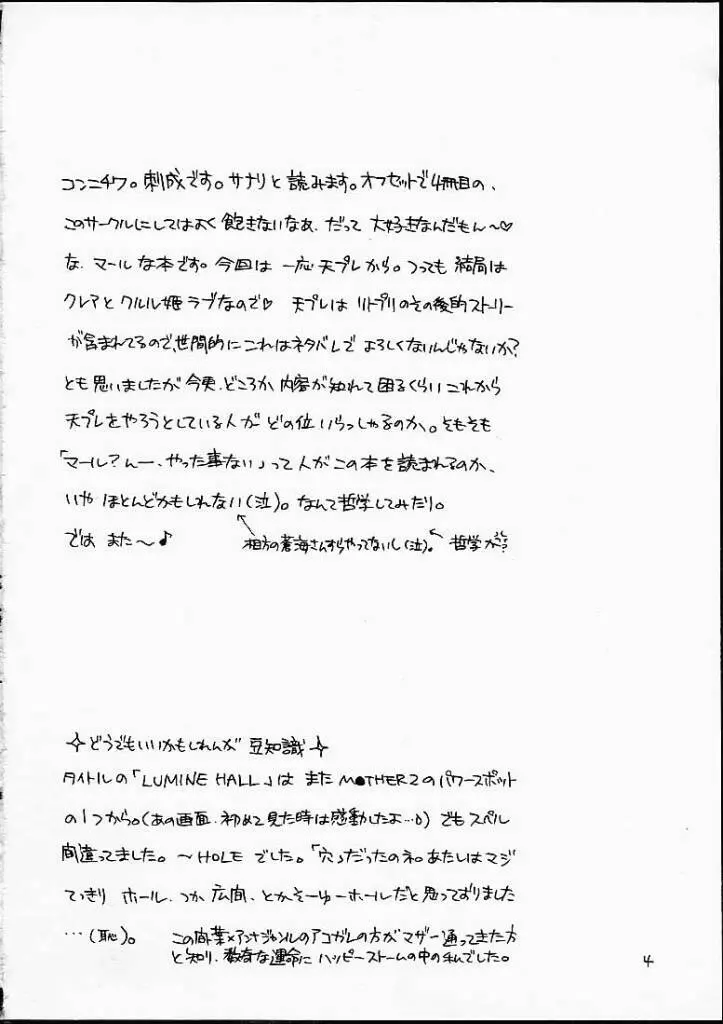 コンニチワ。刺成です。サナリと読みます。オフセットで4冊目の、
このサークルにしてはよく飽きないなぁ、だって大好きなんだもん〜♡
な、マールな本です。今回は一応天プレから。つっても結局は
クレアとクルル姫ラブなので♡ 天プレはリトプリのその後的ストーリー
が含まれてるので、世間的にこれはネタバレでよろしくないんじゃないか?
とも思いましたが今更、どころか内容が知れて困るくらいこれから
天プレをやろうとしている人がどの位いらっしゃるのか。そもそも
「マール?んー、やった事ない」って人がこの本を読まれるのか、
いやほとんどかもしれない(泣)。なんて哲学してみたり。
ではまた〜♪ 相方の蒼海さんすらやってないし(泣)。 哲学か?
✧どうでもいいかもしれんが豆知識✧
タイトルの「LUMINE HALL」はまたM●THER2のパワースポット
の1つから。(あの画面、初めて見た時は感動したよ…) でもスペル
間違ってました。〜HOLEでした。「穴」だったのネ。あたしはマジ
てっきりホール、つか広間、とかそーゆーホールだと思っておりました
…(恥)。 この同業×アンナジャンルのアコガレの方がマザー通ってきた方
と知り、数奇な運命にハッピーストームの中の私でした。
4